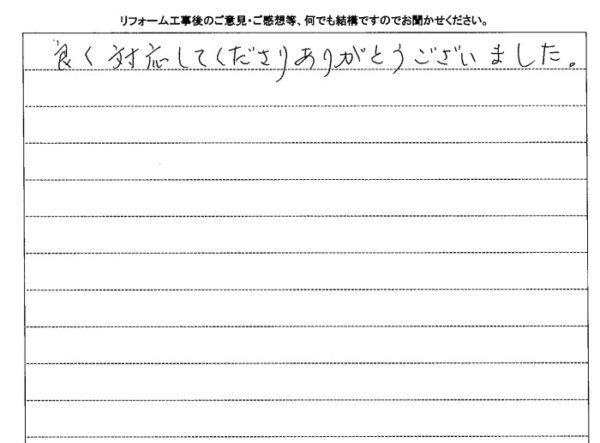 リフォーム工事後のご意見・ご感想等、何でも結構ですのでお聞かせください。
良く対応してくださりありがとうございました。